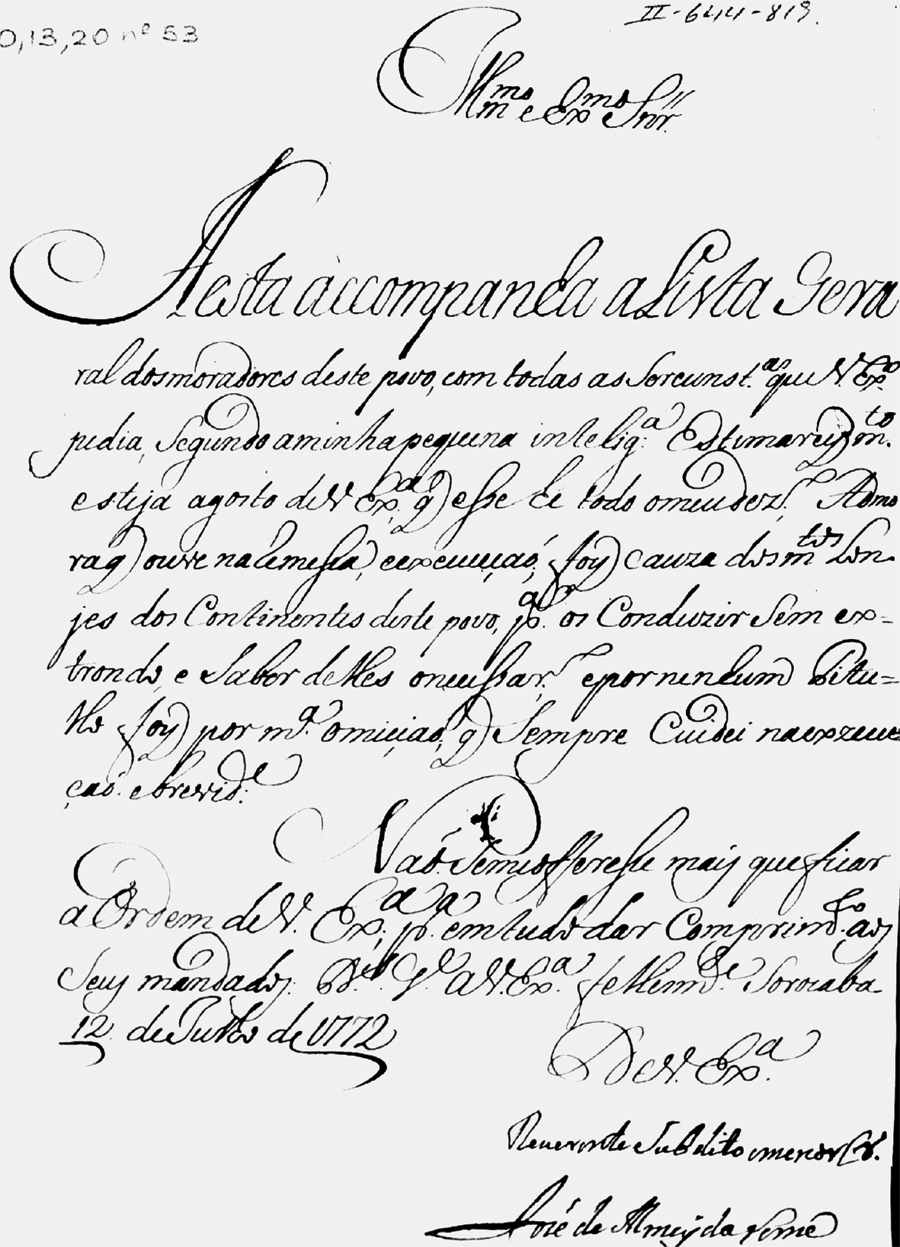 0,13,20 nº 53
II-644-819.
Illmo e Exmo Snr.
A esta accompanha a Lista Gera
ral dos moradores deste povo, com todas as Sercunst.as que V Exª
pidia, Segundo aminha pequena intelig.ª Estimarey m.to
esteja agosto de V Ex.ª q esse he todo omeu dez.º A demo
ra q ouve na Remessa, e execuçaó, foy cauza dos m.tos Lon-
jes dos Continentes deste povo, p.ª os Conduzir Sem ex-
trondo, e Saber delles o necessar.º e por nenhum titu-
llo foy por m.ª omiçaó, q Sempre Cuidei na exzecu
çaó. e brevid.e
Naó Semeofferesse mais que ficar
a Ordem de V. Ex.ª, p.ª em tudo dar Comprim.to aos
Seus mandados. D.s G.e a V. Ex.ª fellem.e Sorocaba
12 de Julho de 1772
De V. Ex.ª
Reverente Subdito e menor Cr.
José de Almeyda Leme